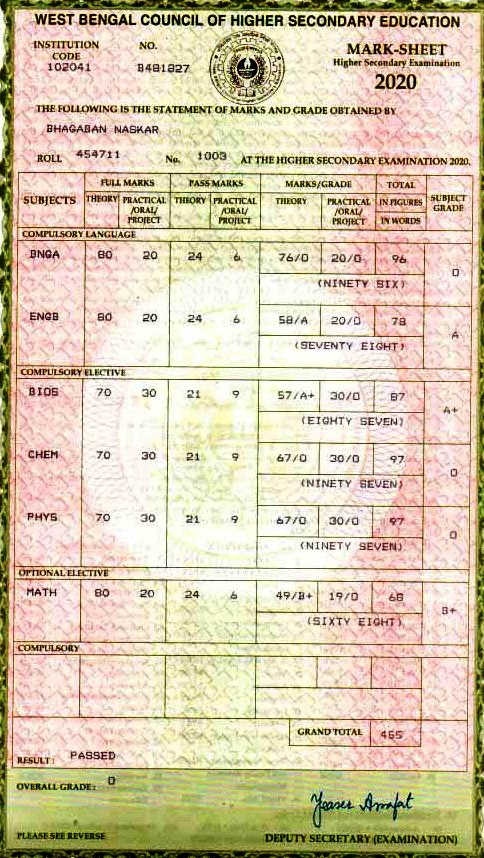 WEST BENGAL COUNCIL OF HIGHER SECONDARY EDUCATION
INSTITUTION CODE 102041
NO. B481827
MARK-SHEET
Higher Secondary Examination
2020
THE FOLLOWING IS THE STATEMENT OF MARKS AND GRADE OBTAINED BY
BHAGABAN NASKAR
ROLL 454711 No. 1003 AT THE HIGHER SECONDARY EXAMINATION 2020.
SUBJECTS FULL MARKS PASS MARKS MARKS/GRADE TOTAL SUBJECT GRADE
THEORY PRACTICAL /ORAL/ PROJECT THEORY PRACTICAL /ORAL/ PROJECT THEORY PRACTICAL /ORAL/ PROJECT IN FIGURES IN WORDS
COMPULSORY LANGUAGE
BNGA 80 20 24 6 76/O 20/O 96 O
(NINETY SIX)
ENGB 80 20 24 6 58/A 20/O 78 A
(SEVENTY EIGHT)
COMPULSORY ELECTIVE
BIOS 70 30 21 9 57/A+ 30/O 87 A+
(EIGHTY SEVEN)
CHEM 70 30 21 9 67/O 30/O 97 O
(NINETY SEVEN)
PHYS 70 30 21 9 67/O 30/O 97 O
(NINETY SEVEN)
OPTIONAL ELECTIVE
MATH 80 20 24 6 49/B+ 19/O 68 B+
(SIXTY EIGHT)
COMPULSORY
GRAND TOTAL 455
RESULT: PASSED
OVERALL GRADE: O
Yeaser Arrafat
PLEASE SEE REVERSE
DEPUTY SECRETARY (EXAMINATION)